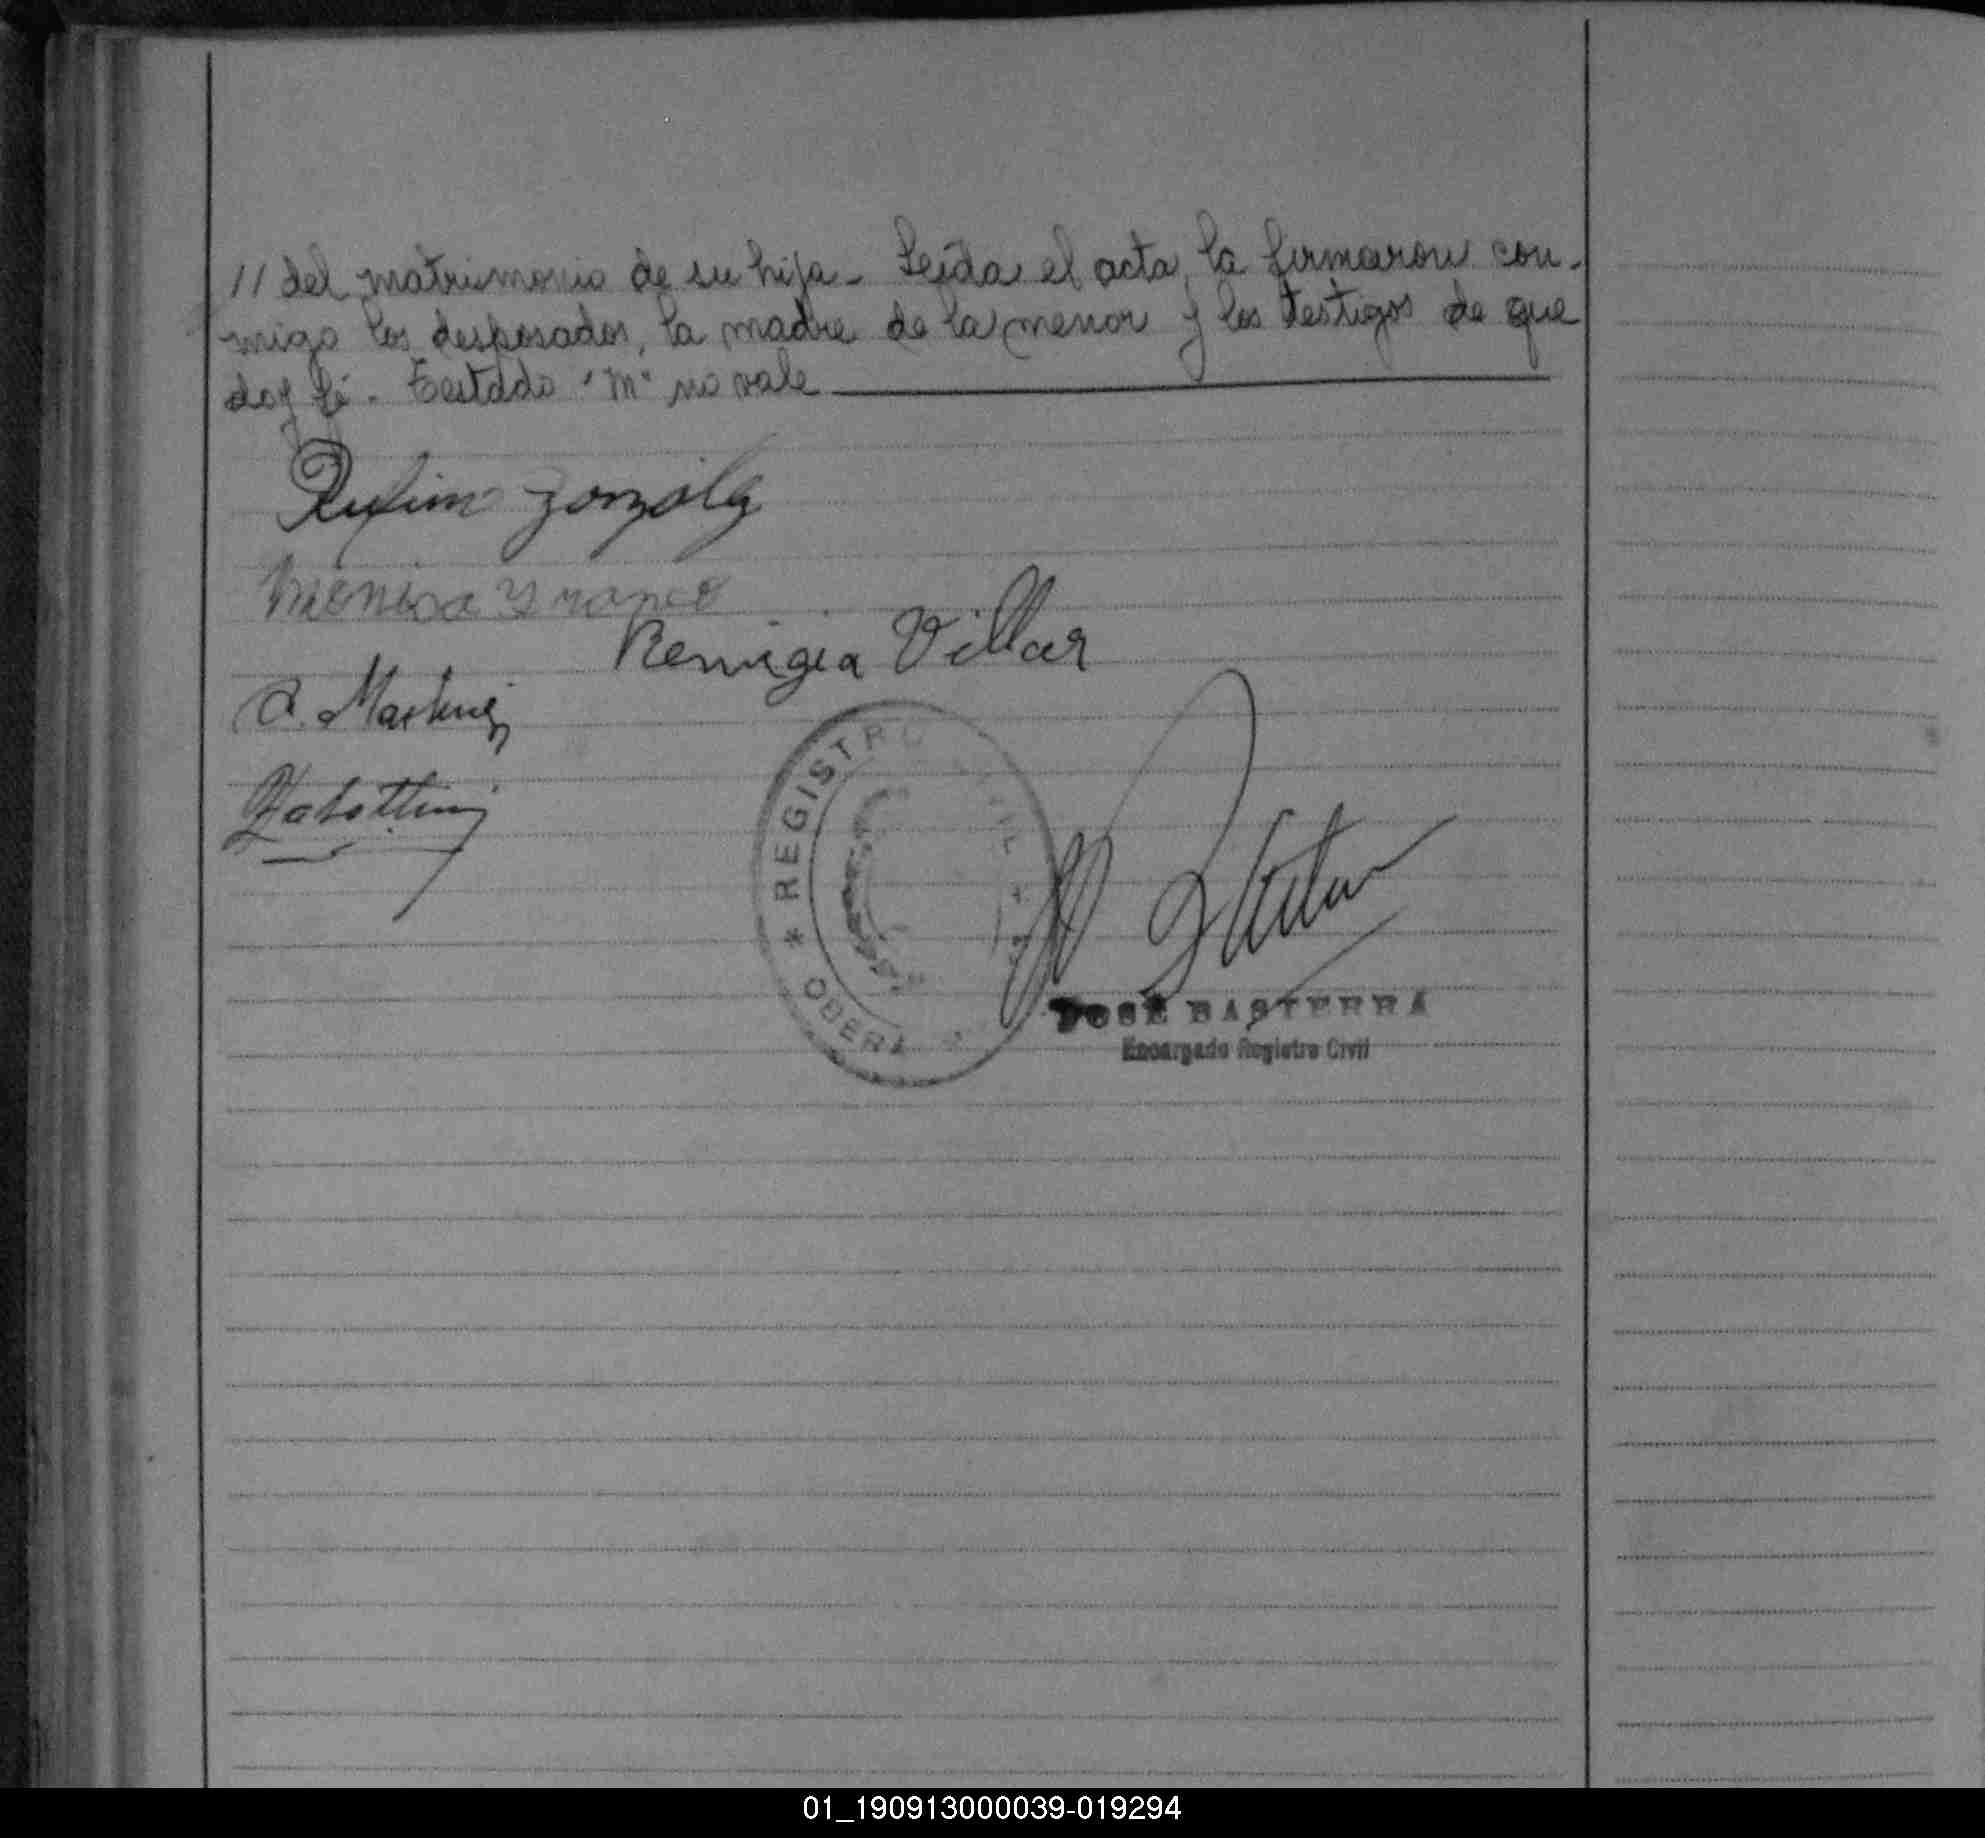 // del matrimonio de su hija - Leída el acta, la firmaron con-
migo los desposados, la madre de la menor y los testigos de que
doy fé. Testado "M" no vale
Rufino González
Remigia Villar
A. Martinez
REGISTRO CIVIL
* OBERA
JOSÉ BASTERRA
Encargado Registro Civil
01_190913000039-019294